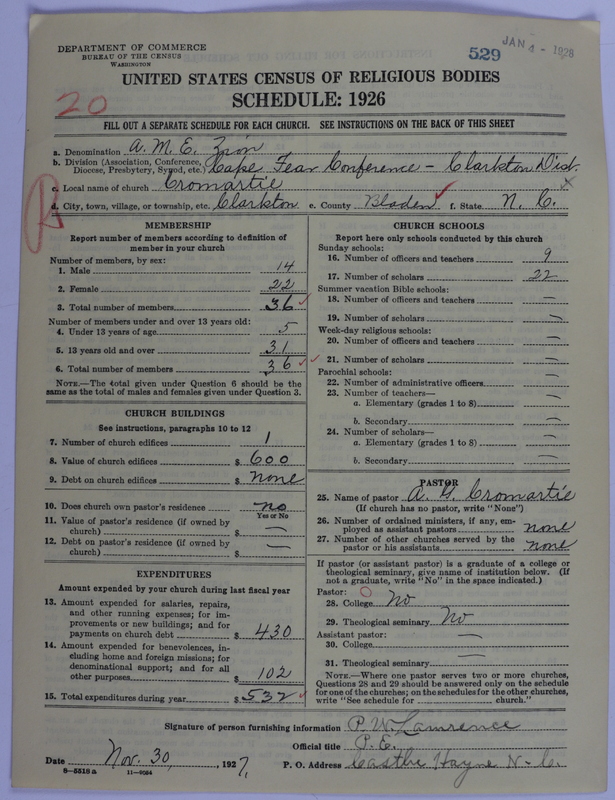 DEPARTMENT OF COMMERCE
BUREAU OF THE CENSUS
WASHINGTON
529
JAN 4 - 1928
UNITED STATES CENSUS OF RELIGIOUS BODIES
20
SCHEDULE: 1926
FILL OUT A SEPARATE SCHEDULE FOR EACH CHURCH. SEE INSTRUCTIONS ON THE BACK OF THIS SHEET
a. Denomination A. M. E. Zion
b. Division (Association, Conference, Diocese, Presbytery, Synod, etc.) Cape Fear Conference - Clarkton Dist.
c. Local name of church Cromartie
d. City, town, village, or township, etc. Clarkton e. County Bladen f. State N. C.
MEMBERSHIP
Report number of members according to definition of
member in your church
Number of members, by sex:
1. Male 14
2. Female 22
3. Total number of members 36
Number of members under and over 13 years old:
4. Under 13 years of age 5
5. 13 years old and over 31
6. Total number of members 36
NOTE.—The total given under Question 6 should be the
same as the total of males and females given under Question 3.
CHURCH BUILDINGS
See instructions, paragraphs 10 to 12
7. Number of church edifices 1
8. Value of church edifices $ 600
9. Debt on church edifices $ none
10. Does church own pastor's residence no
Yes or No
11. Value of pastor's residence (if owned by
church) $ —
12. Debt on pastor's residence (if owned by
church) $ —
EXPENDITURES
Amount expended by your church during last fiscal year
13. Amount expended for salaries, repairs,
and other running expenses; for im-
provements or new buildings; and for
payments on church debt $ 430
14. Amount expended for benevolences, in-
cluding home and foreign missions; for
denominational support; and for all
other purposes $ 102
15. Total expenditures during year $ 532
CHURCH SCHOOLS
Report here only schools conducted by this church
Sunday schools:
16. Number of officers and teachers 9
17. Number of scholars 22
Summer vacation Bible schools:
18. Number of officers and teachers —
19. Number of scholars —
Week-day religious schools:
20. Number of officers and teachers —
21. Number of scholars —
Parochial schools:
22. Number of administrative officers —
23. Number of teachers—
a. Elementary (grades 1 to 8) —
b. Secondary —
24. Number of scholars—
a. Elementary (grades 1 to 8) —
b. Secondary —
PASTOR
25. Name of pastor A. G. Cromartie
(If church has no pastor, write "None")
26. Number of ordained ministers, if any, em-
ployed as assistant pastors none
27. Number of other churches served by the
pastor or his assistants none
If pastor (or assistant pastor) is a graduate of a college or
theological seminary, give name of institution below. (If
not a graduate, write "No" in the space indicated.)
Pastor:
28. College No
29. Theological seminary No
Assistant pastor:
30. College —
31. Theological seminary —
NOTE.—Where one pastor serves two or more churches,
Questions 28 and 29 should be answered only on the schedule
for one of the churches; on the schedules for the other churches,
write "See schedule for church."
Signature of person furnishing information P. W. Lawrence
Official title P. E.
Date Nov. 30, 1927, P. O. Address Castle Hayne N-C.
8-5518a 11-9084